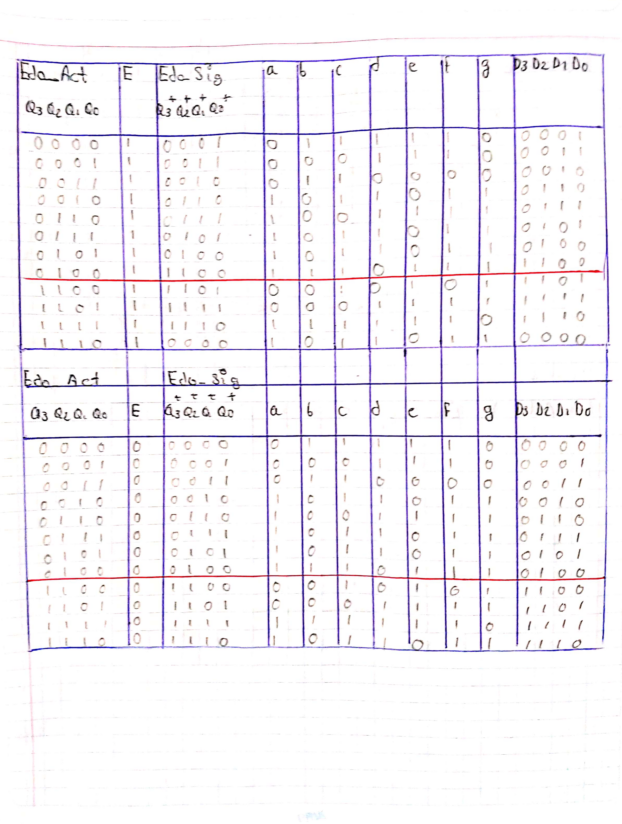 Edo_Act E Edo_Sig a b c d e f g D3 D2 D1 D0
Q3 Q2 Q1 Q0 Q3+ Q2+ Q1+ Q0+
0 0 0 0 1 0 0 0 1 0 1 1 1 1 1 0 0 0 0 1
0 0 0 1 1 0 0 1 1 0 0 0 1 1 1 0 0 0 1 1
0 0 1 1 1 0 0 1 0 0 1 1 0 0 0 0 0 0 1 0
0 0 1 0 1 0 1 1 0 1 0 1 1 0 1 1 0 1 1 0
0 1 1 0 1 0 1 1 1 1 0 0 1 1 1 1 0 1 1 1
0 1 1 1 1 0 1 0 1 1 0 1 1 0 1 1 0 1 0 1
0 1 0 1 1 0 1 0 0 1 0 1 1 0 1 1 0 1 0 0
0 1 0 0 1 1 1 0 0 1 1 1 0 1 1 1 1 1 0 0
1 1 0 0 1 1 1 0 1 0 0 1 0 1 0 1 1 1 0 1
1 1 0 1 1 1 1 1 1 0 0 0 1 1 1 1 1 1 1 1
1 1 1 1 1 1 1 1 0 1 1 1 1 1 1 0 1 1 1 0
1 1 1 0 1 0 0 0 0 1 0 1 1 0 1 1 0 0 0 0
Edo_Act Edo_Sig
Q3 Q2 Q1 Q0 E Q3+ Q2+ Q1+ Q0+ a b c d e f g D3 D2 D1 D0
0 0 0 0 0 0 0 0 0 0 1 1 1 1 1 0 0 0 0 0
0 0 0 1 0 0 0 0 1 0 0 0 1 1 1 0 0 0 0 1
0 0 1 1 0 0 0 1 1 0 1 1 0 0 0 0 0 0 1 1
0 0 1 0 0 0 0 1 0 1 0 1 1 0 1 1 0 0 1 0
0 1 1 0 0 0 1 1 0 1 0 0 1 1 1 1 0 1 1 0
0 1 1 1 0 0 1 1 1 1 0 1 1 0 1 1 0 1 1 1
0 1 0 1 0 0 1 0 1 1 0 1 1 0 1 1 0 1 0 1
0 1 0 0 0 0 1 0 0 1 1 1 0 1 1 1 0 1 0 0
1 1 0 0 0 1 1 0 0 0 0 1 0 1 0 1 1 1 0 0
1 1 0 1 0 1 1 0 1 0 0 0 1 1 1 1 1 1 0 1
1 1 1 1 0 1 1 1 1 1 1 1 1 1 1 0 1 1 1 1
1 1 1 0 0 1 1 1 0 1 0 1 1 0 1 1 1 1 1 0